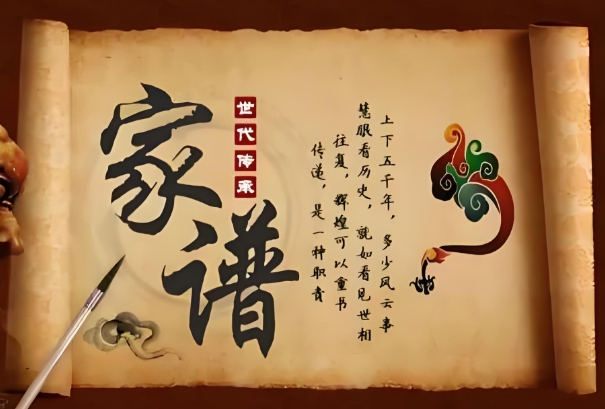 家谱
世代传承
上下五千年，多少风云事
慧眼看历史，就如看见世相
往复，辉煌可以重书
传递，是一种职责